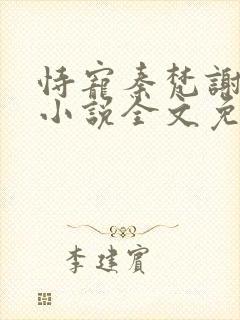 恃寵秦梵謝
小說全文免
李建賓